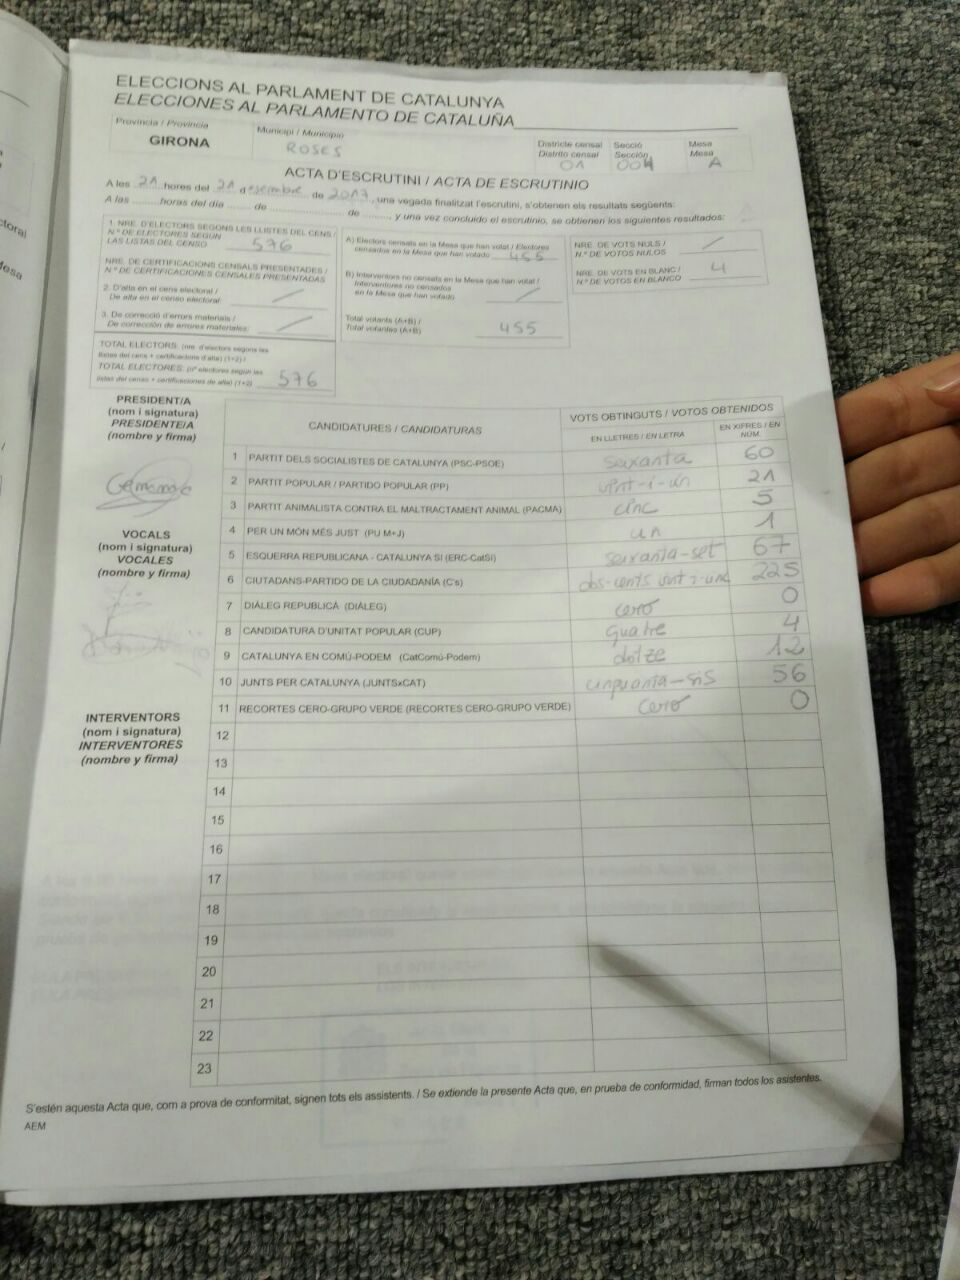 ELECCIONS AL PARLAMENT DE CATALUNYA
ELECCIONES AL PARLAMENTO DE CATALUÑA
Província / Provincia
GIRONA
Municipi / Municipio
ROSES
Districte censal
Distrito censal
01
Secció
Sección
004
Mesa
Mesa
A
ACTA D'ESCRUTINI / ACTA DE ESCRUTINIO
A les 21 hores del 21 desembre de 2017, una vegada finalitzat l'escrutini, s'obtenen els resultats següents:
A las ......... horas del día ...... de ........................ de ........... y una vez concluido el escrutinio, se obtienen los siguientes resultados:
1. NRE. D'ELECTORS SEGONS LES LLISTES DEL CENS /
N.º DE ELECTORES SEGÚN
LAS LISTAS DEL CENSO 576
NRE. DE CERTIFICACIONS CENSALS PRESENTADES /
N.º DE CERTIFICACIONES CENSALES PRESENTADAS
2. D'alta en el cens electoral /
De alta en el censo electoral:
3. De correcció d'errors materials /
De corrección de errores materiales:
TOTAL ELECTORS: (nre. d'electors segons les
llistes del cens + certificacions d'alta) (1+2) /
TOTAL ELECTORES: (nº electores según las
listas del censo + certificaciones de alta) (1+2) 576
A) Electors censats en la Mesa que han votat / Electores
censados en la Mesa que han votado 455
B) Interventors no censats en la Mesa que han votat /
Interventores no censados
en la Mesa que han votado
Total votants (A+B) /
Total votantes (A+B) 455
NRE. DE VOTS NULS /
N.º DE VOTOS NULOS
NRE. DE VOTS EN BLANC /
N.º DE VOTOS EN BLANCO 4
PRESIDENT/A
(nom i signatura)
PRESIDENTE/A
(nombre y firma)
VOCALS
(nom i signatura)
VOCALES
(nombre y firma)
INTERVENTORS
(nom i signatura)
INTERVENTORES
(nombre y firma)
CANDIDATURES / CANDIDATURAS
VOTS OBTINGUTS / VOTOS OBTENIDOS
EN LLETRES / EN LETRA
EN XIFRES / EN NÚM.
1 PARTIT DELS SOCIALISTES DE CATALUNYA (PSC-PSOE) seixanta 60
2 PARTIT POPULAR / PARTIDO POPULAR (PP) vint-i-un 21
3 PARTIT ANIMALISTA CONTRA EL MALTRACTAMENT ANIMAL (PACMA) cinc 5
4 PER UN MÓN MÉS JUST (PU M+J) un 1
5 ESQUERRA REPUBLICANA - CATALUNYA SÍ (ERC-CatSÍ) seixanta-set 67
6 CIUTADANS-PARTIDO DE LA CIUDADANÍA (C's) dos-cents vint-i-cinc 225
7 DIÀLEG REPUBLICÀ (DIÀLEG) cero 0
8 CANDIDATURA D'UNITAT POPULAR (CUP) quatre 4
9 CATALUNYA EN COMÚ-PODEM (CatComú-Podem) dotze 12
10 JUNTS PER CATALUNYA (JUNTSxCAT) cinquanta-sis 56
11 RECORTES CERO-GRUPO VERDE (RECORTES CERO-GRUPO VERDE) cero 0
12
13
14
15
16
17
18
19
20
21
22
23
S'estén aquesta Acta que, com a prova de conformitat, signen tots els assistents. / Se extiende la presente Acta que, en prueba de conformidad, firman todos los asistentes.
AEM